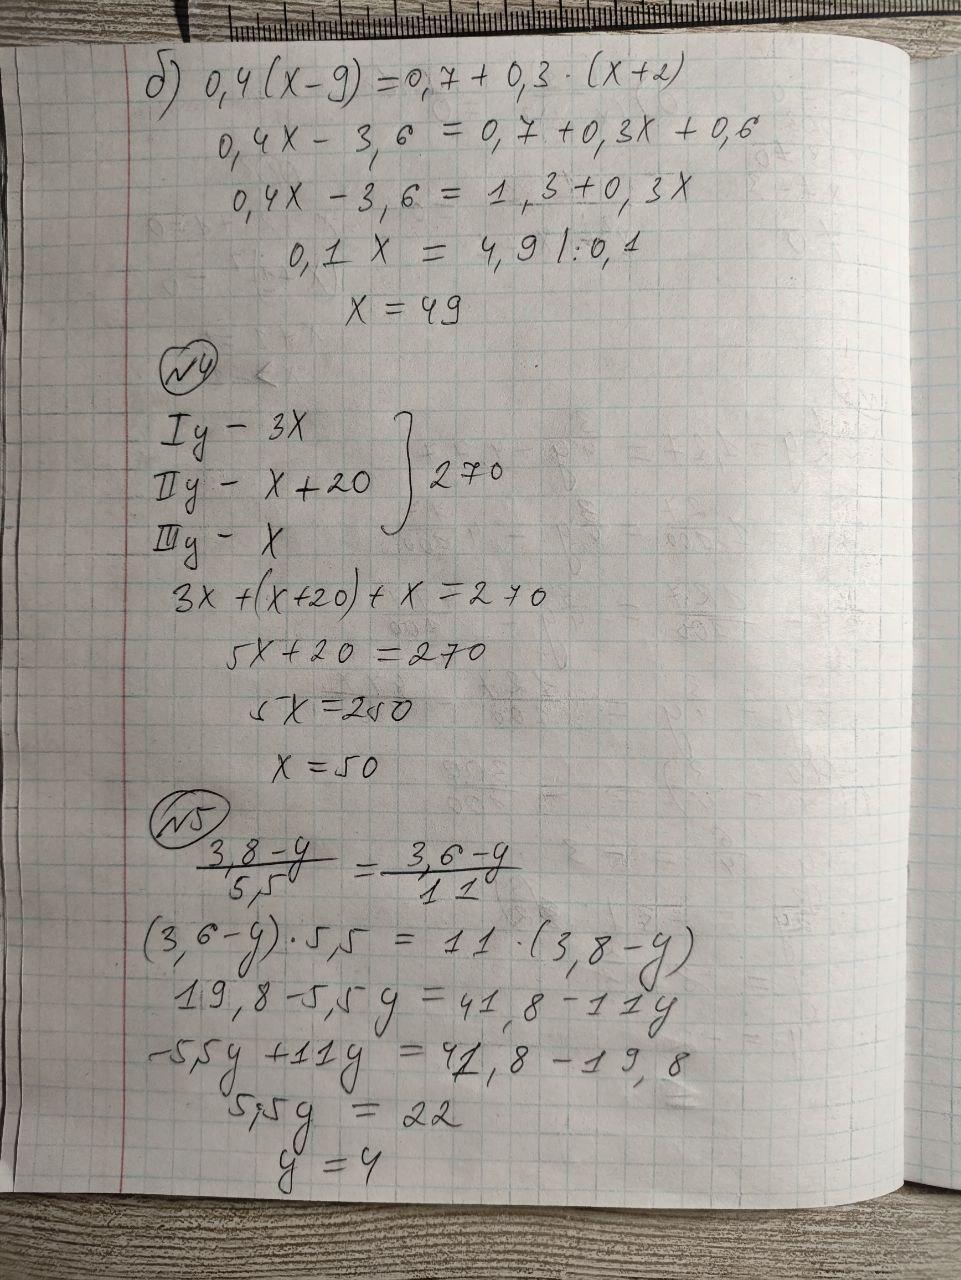 б) 0,4(x-9)=0,7+0,3·(x+2)
0,4x-3,6=0,7+0,3x+0,6
0,4x-3,6=1,3+0,3x
0,1x=4,9 |:0,1
x=49
№4
Iу - 3x
IIу - x+20
IIIу - x
} 270
3x+(x+20)+x=270
5x+20=270
5x=250
x=50
№5
3,8-y/5,5 = 3,6-y/11
(3,6-y)·5,5=11·(3,8-y)
19,8-5,5y=41,8-11y
-5,5y+11y=41,8-19,8
5,5y=22
y=4